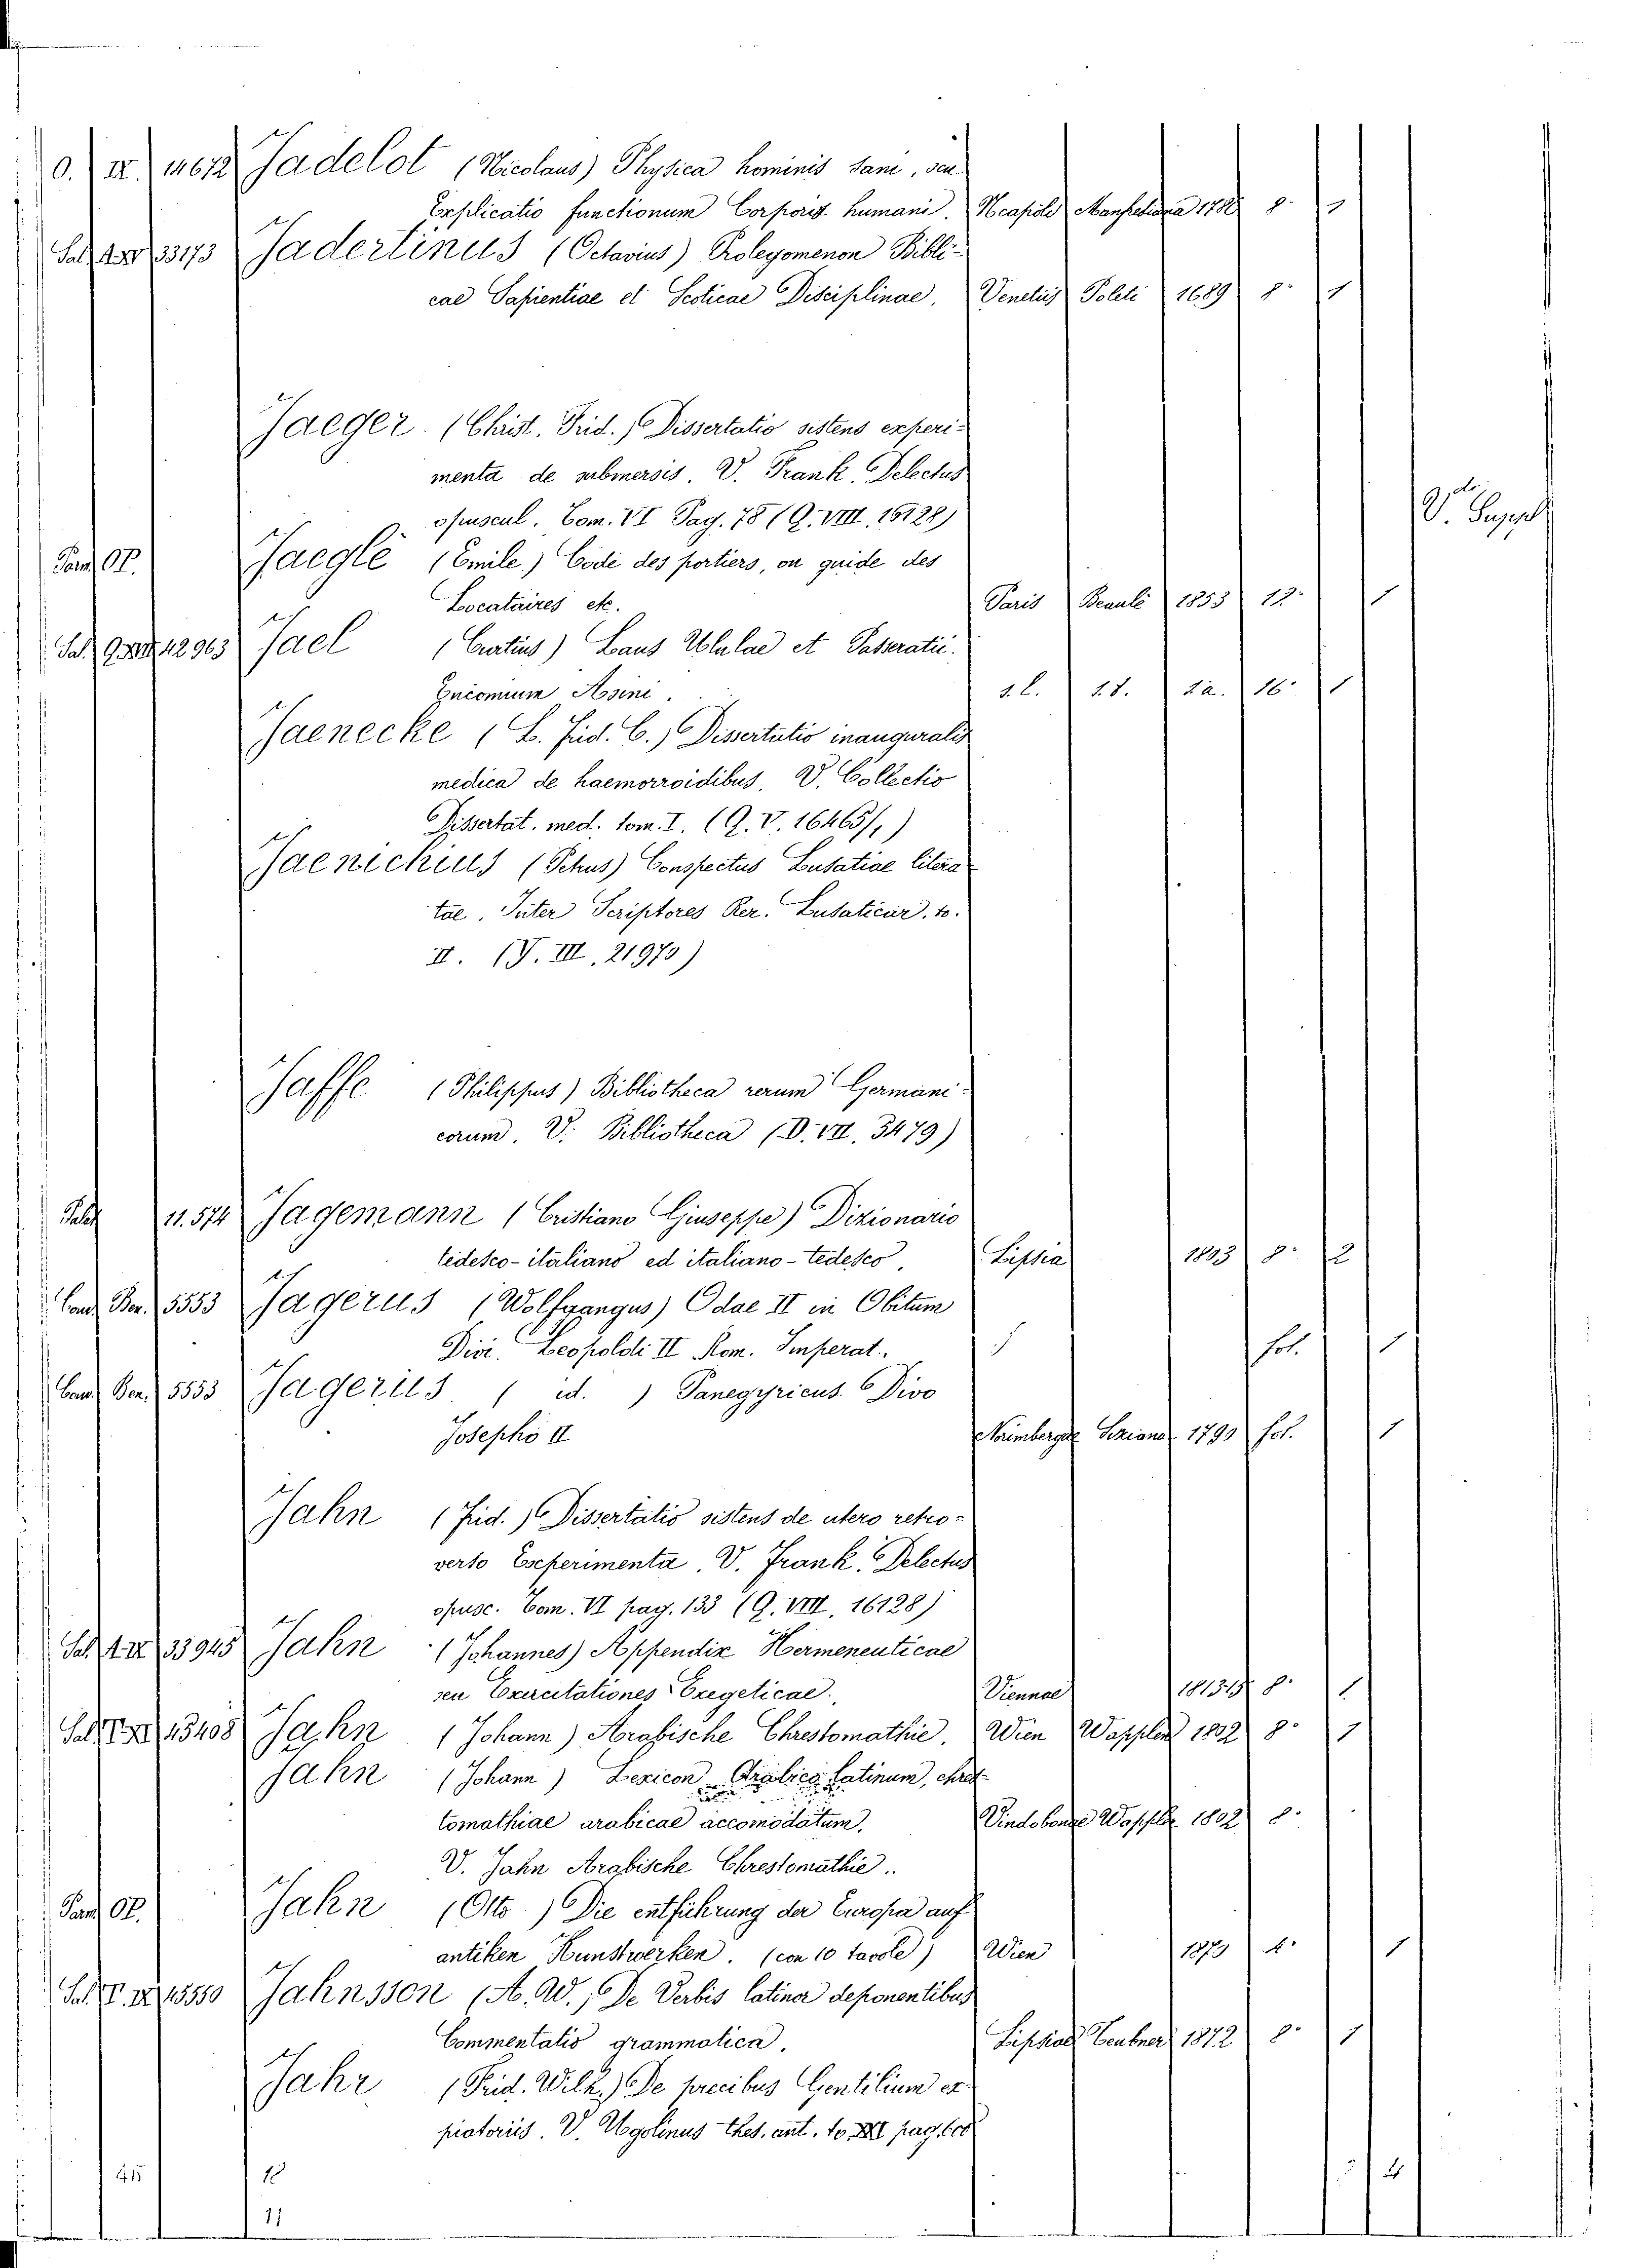 O. IX. 14672 Jadelot (Nicolaus) Physica hominis sani, seu
Explicatio functionum Corporis humani. Neapoli Manfrediana 1788 8º 1
33173 Jadertinus (Octavius) Prolegomenon Bibli-
cae Sapientiae et Scoticae Disciplinae. Venetiis Poleti 1689 8º 1
Jaeger. (Christ. Frid.) Dissertatio sistens experi-
menta de submersis. V. Frank. Delectus
opuscul. Tom. VI Pag. 78 (Q. VIII. 16128)
V. Suppl.
Jaeglé (Emile.) Code des portiers, ou guide des
Locataires etc. Paris Beaulé 1853 12º 1
12963 Jael (Curtius) Laus Ululae et Passeratii.
Encomium Asini. s.l. s.t. s.a. 16º 1
Jaenecke (L. Frid. C.) Dissertatio inauguralis
medica de haemorroidibus. V. Collectio
Dissertat. med. tom. I. (Q. V. 16465/1)
Jaenichius (Petrus) Conspectus Lusatiae litera-
tae. Inter Scriptores Rer. Lusaticar. to.
II. (V. III. 21973)
Jaffe (Philippus) Bibliotheca rerum Germani-
corum. V. Bibliotheca (D. VII. 3479)
11.574 Jagemann (Cristiano Giuseppe) Dizionario
tedesco-italiano ed italiano-tedesco. Lipsia 1803 8º 2
5553 Jagerus (Wolfgangus) Odae II in Obitum
Divi. Leopoldi II Rom. Imperat. fol. 1
5553 Jagerus (id.) Panegyricus Divo
Josepho II Norimbergae 1790 fol. 1
Jahn (Frid.) Dissertatio sistens de utero retro-
verto Experimenta. V. Frank. Delectus
opusc. Tom. VI pag. 133 (Q. VIII. 16128)
33945 Jahn (Johannes) Appendix Hermeneuticae
seu Exercitationes Exegeticae. Viennae 1813.15 8º 1
Jahn (Johann) Arabische Chrestomathie. Wien Wappler 1802 8º 1
Jahn (Johann) Lexicon Arabico Latinum, chres-
tomathiae arabicae accomodatum. Vindobonae Wappler 1802 8º
V. Jahn Arabische Chrestomathie.
Jahn (Otto) Die entführung der Europa auf
antiken Kunstwerken. (con 10 tavole) Wien 1870 4º 1
15550 Jahnsson (A. W.) De Verbis latinor deponentibus
Commentatio grammatica. Lipsiae Teubner 1872 8º 1
Jahr (Frid. Wilh.) De precibus Gentilium ex-
piatoriis. V. Ugolinus thes. ant. to. XXI pag.
45 10 4
11